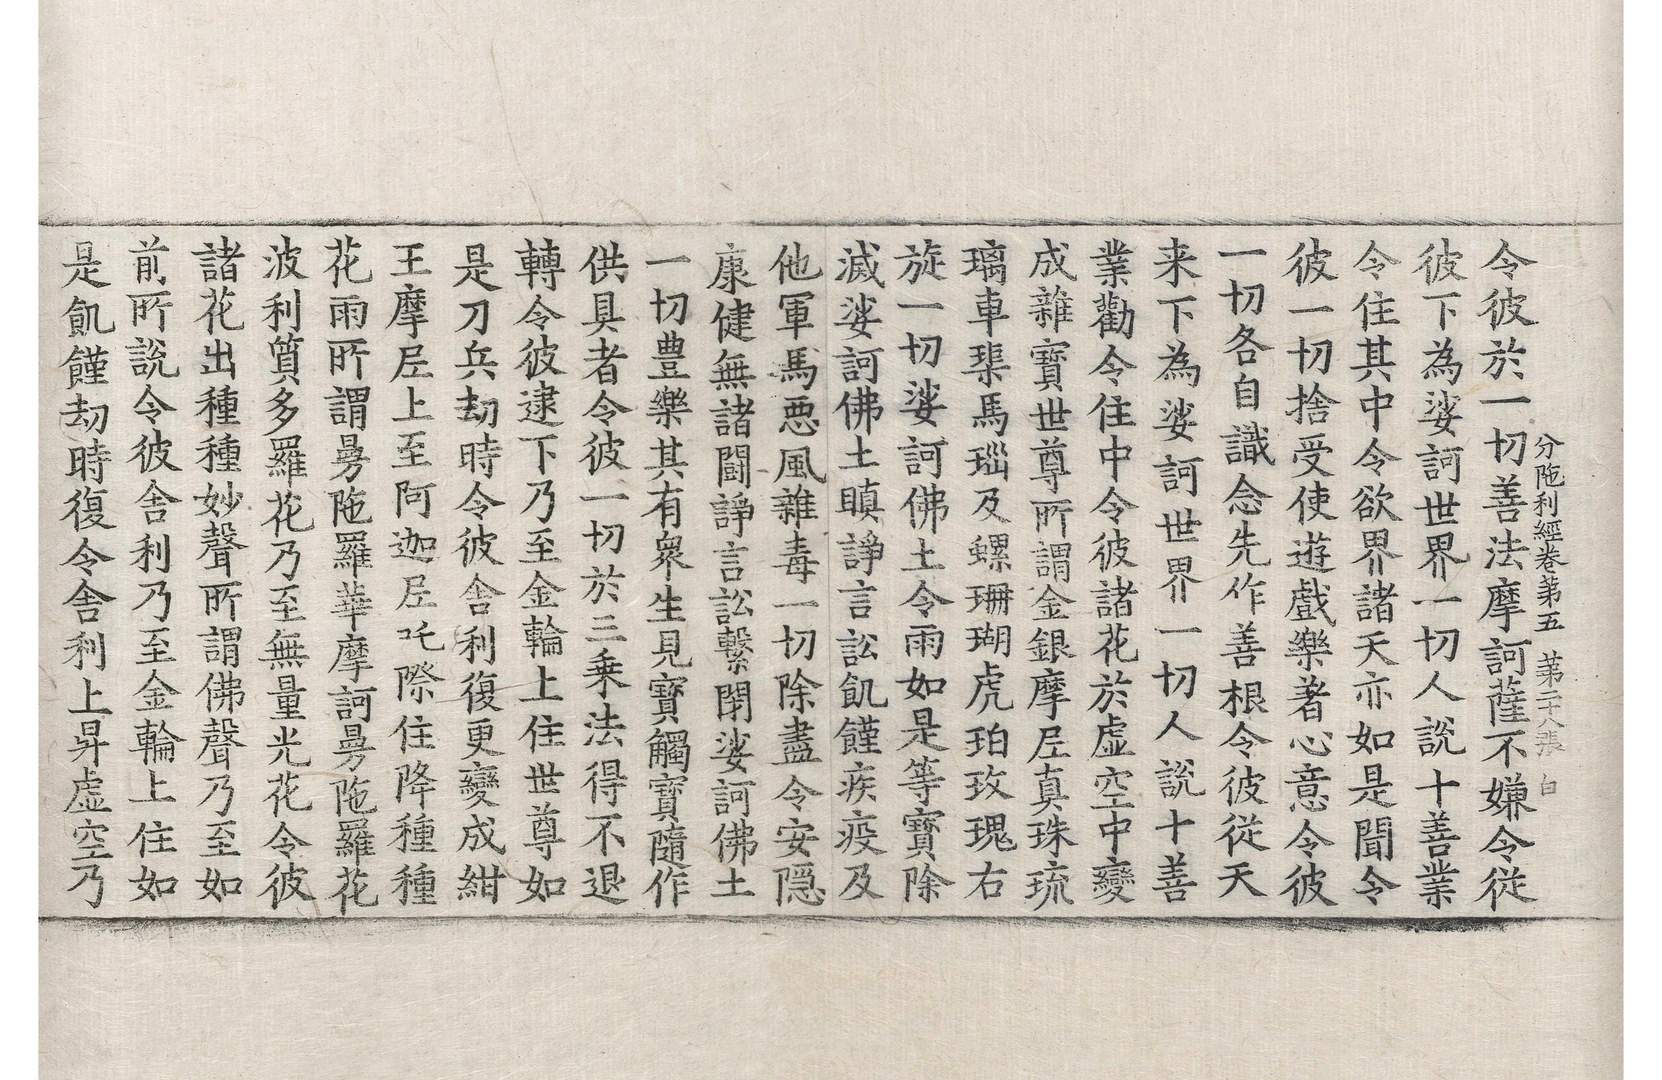 分陁利經卷第五　第二十八張　白
令彼於一切善法摩訶薩不嫌令從
彼下為娑訶世界一切人說十善業
令住其中令欲界諸天亦如是聞令
彼一切捨受使遊戲樂著心意令彼
一切各自識念先作善根令彼從天
来下為娑訶世界一切人說十善
業勸令住中令彼諸花於虛空中變
成雜寶世尊所謂金銀摩尼真珠琉
璃車𤦲馬瑙及螺珊瑚虎珀玫瑰右
旋一切娑訶佛土令雨如是等寶除
滅娑訶佛土瞋諍言訟飢饉疾疫及
他軍馬惡風雜毒一切除盡令安隱
康健無諸鬪諍言訟繫閉娑訶佛土
一切豊樂其有衆生見寶觸寶隨作
供具者令彼一切於三乘法得不退
轉令彼逮下乃至金輪上住世尊如
是刀兵劫時令彼舍利復更變成紺
王摩尼上至阿迦尼吒際住降種種
花雨所謂曼陁羅華摩訶曼陁羅花
波利質多羅花乃至無量光花令彼
諸花出種種妙聲所謂佛聲乃至如
前所說令彼舍利乃至金輪上住如
是飢饉劫時復令舍利上昇虛空乃